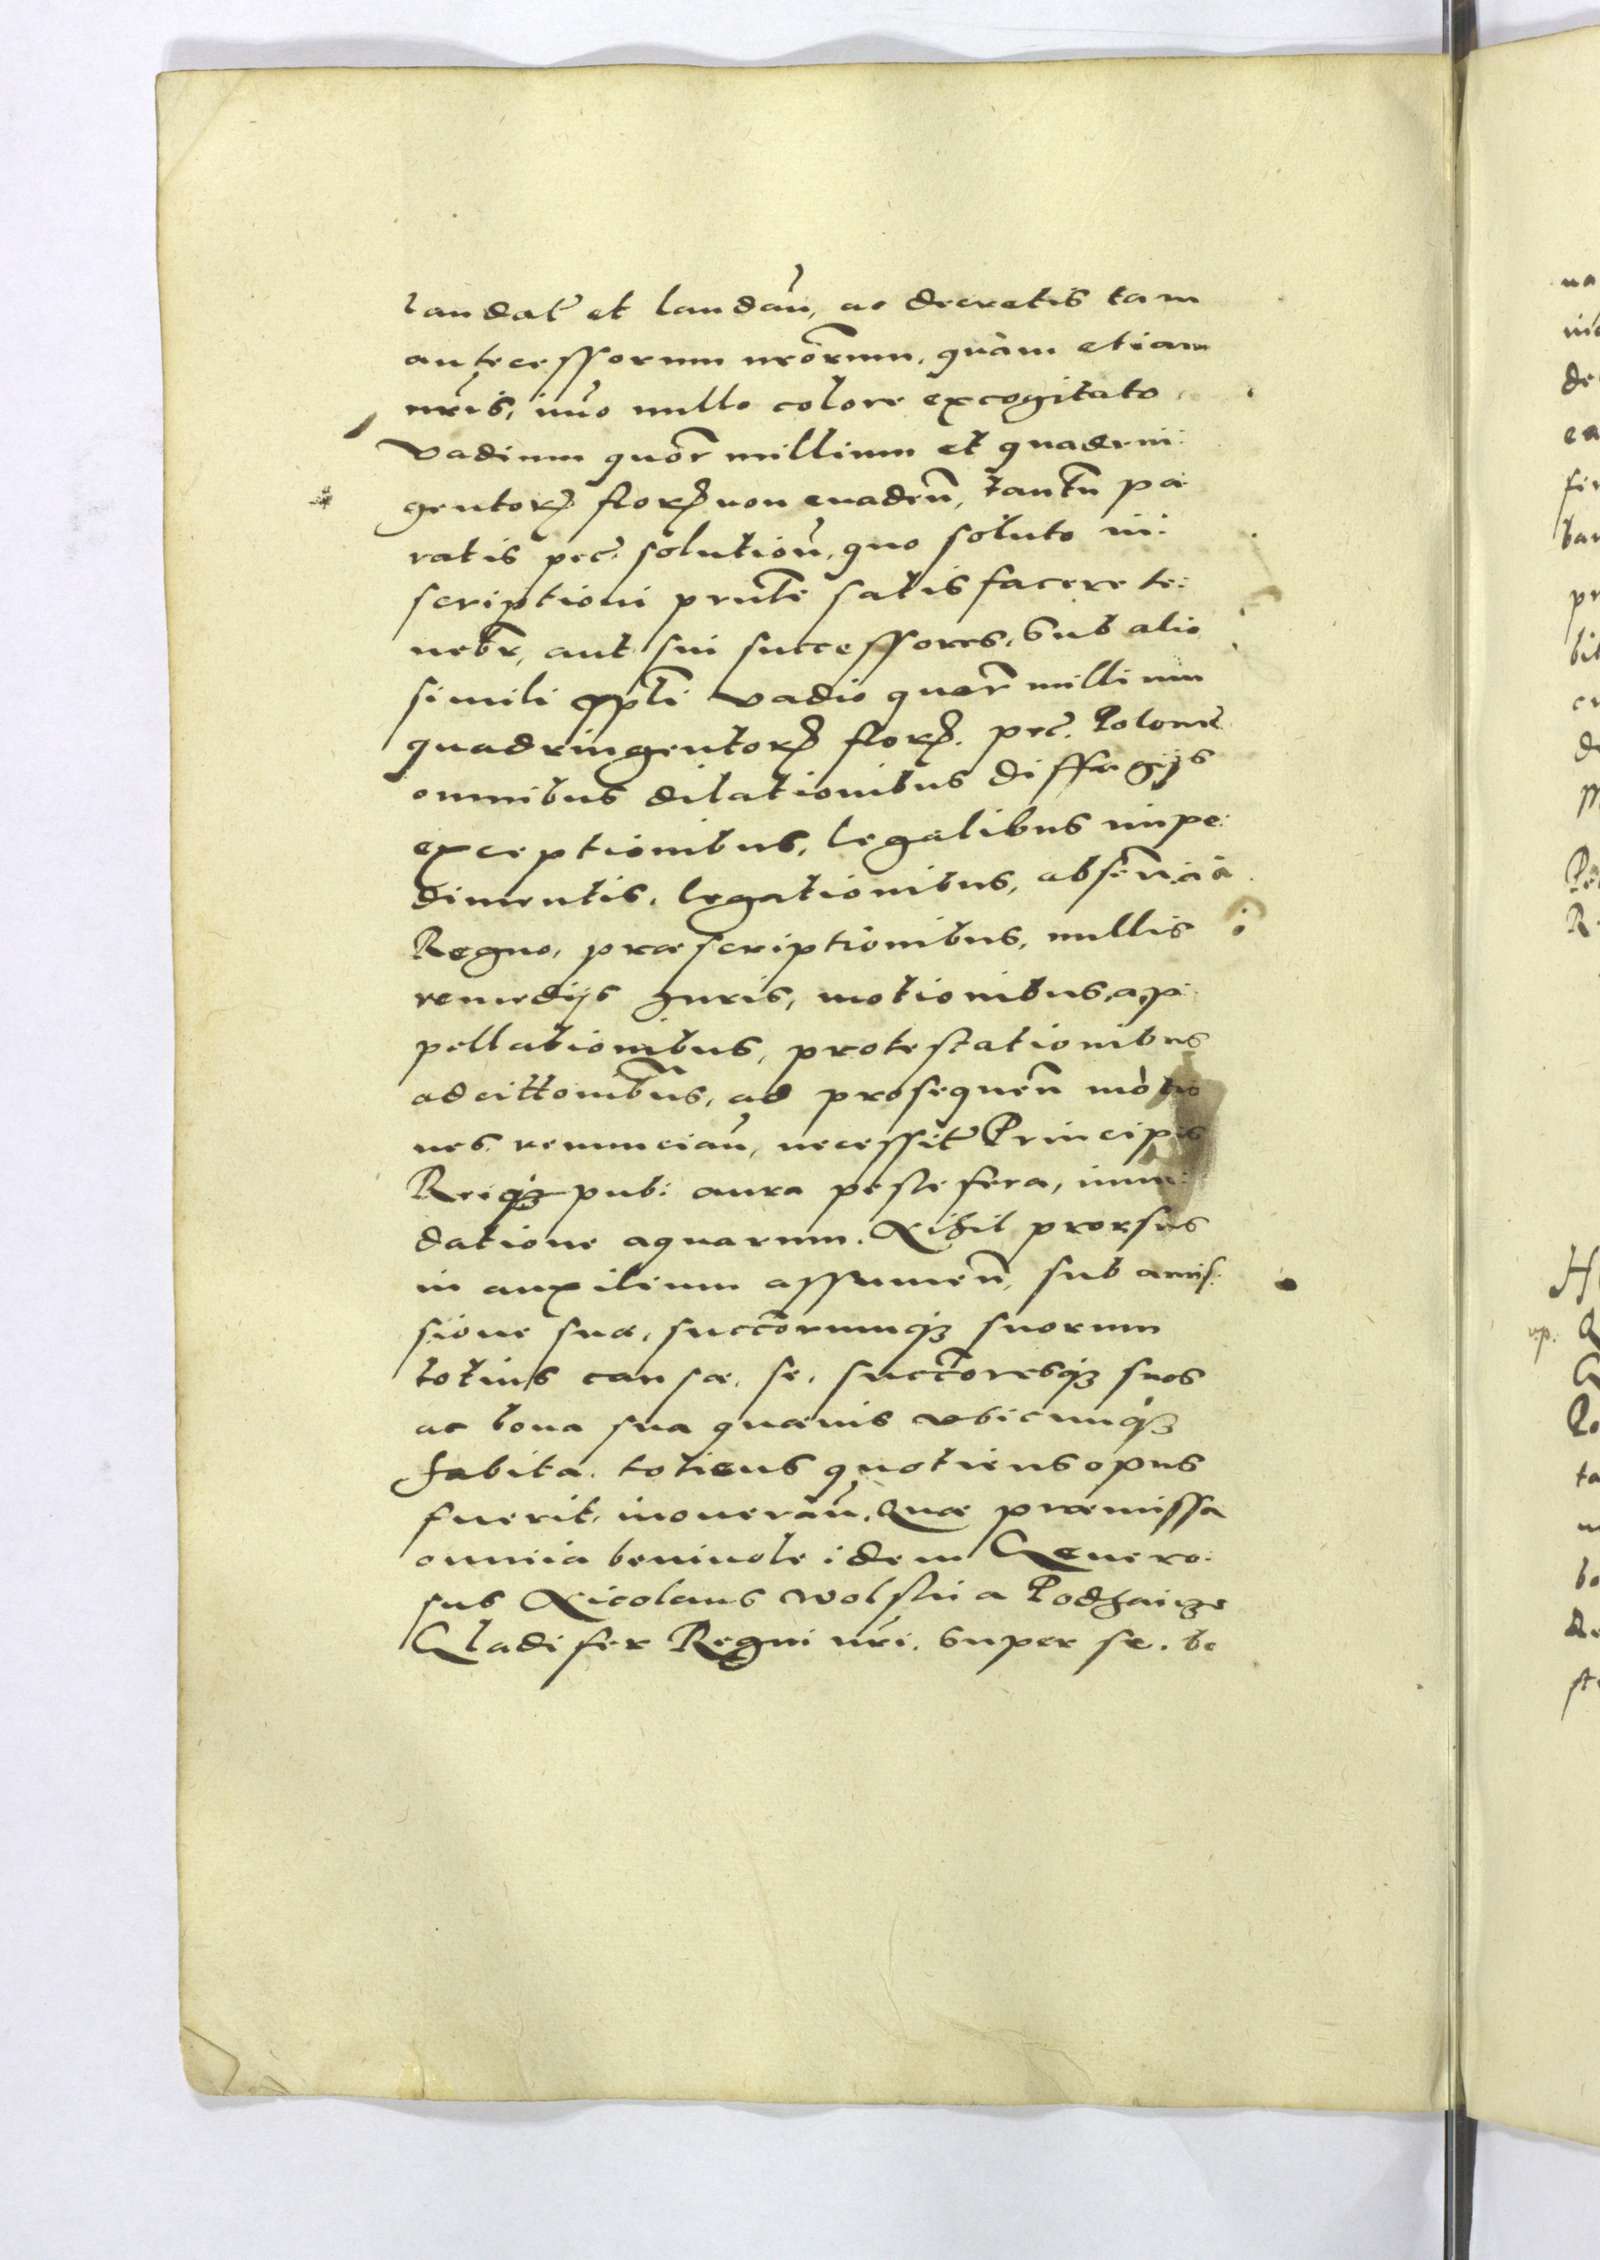 laudat̃ et laudañ, ac decretis tam
antecessorum nr̃orum, quàm etiam
nr̃is, im̃o nullo colore excogitato
vadium quor̃ millium et quadrin:
gentorꝝ florꝝ non euadeñ, tantũ pa
ratis pec̃. solutioñ, quo soluto in:
scriptioni pr̃nti satisfacere te:
nebr̃, aut sui successores, sub alio
simili vadio quor̃ millium
quadringentorꝝ florꝝ. pec̃. Polonic̃
omnibus dilationibus diffugijs
exceptionibus, legalibus impe:
dimentis, legationibus, absencia à
Regno, præscriptionibus, nullis
remedijs iuris, motionibus, ap:
pellationibus, protestationibus
ad prosequeñ motio
nes renunciañ, necessit̃ Principis
Reiqꝫ pub: aura pestifera, inun:
datione aquarum. Nihil prorsus
in auxilium assumeñ, sub amis:
sione suæ, succc̃orumqꝫ suorum
totius causæ, se, succc̃oresqꝫ suos
ac bona sua quæuis vbicunqꝫ
habita, totiens quotiens opus
fuerit, inouerañ. Quæ præmissa
omnia beniuole idem Genero:
sus Nicolaus Wolski a Podhaicze
Gladifer Regni nr̃i. super se. bo